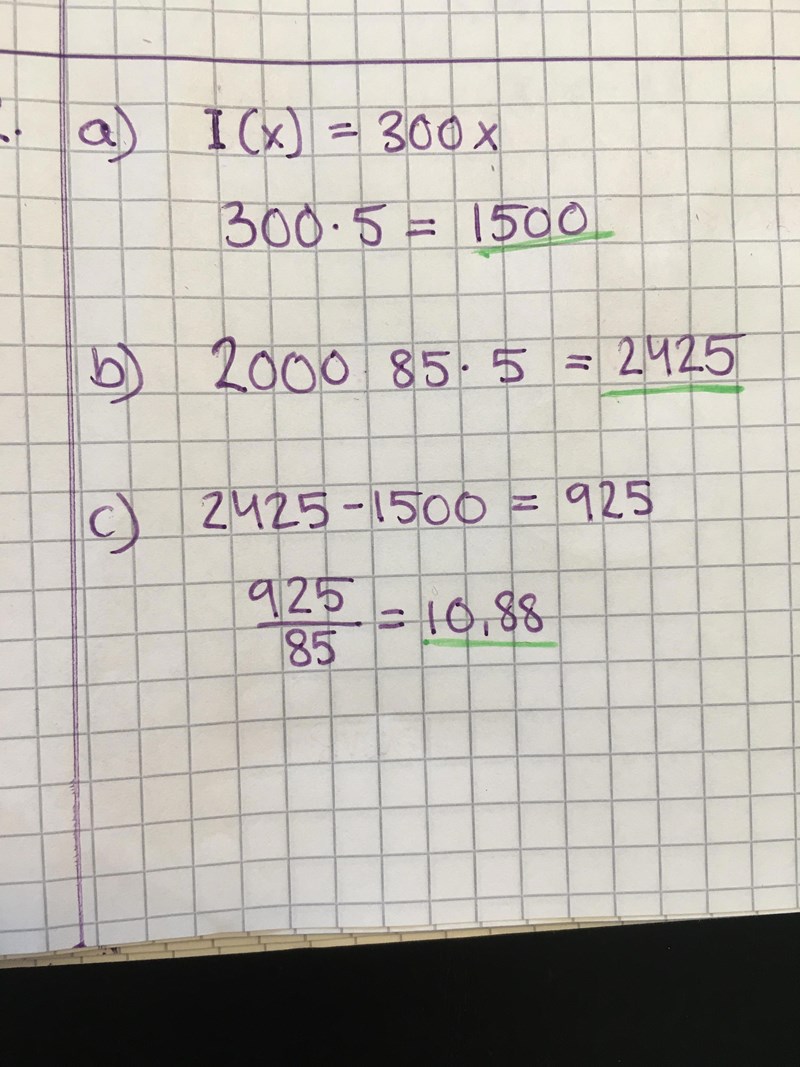 a) I(x) = 300x
300·5 = 1500
b) 2000 85· 5 = 2425
c) 2425-1500 = 925
925/85 = 10,88